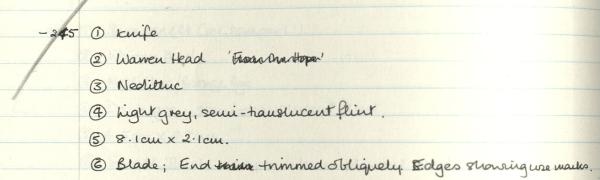 -245 ① Knife
② Warren Head
③ Neolithic
④ Light grey, semi-translucent flint.
⑤ 8.1cm x 2.1cm.
⑥ Blade; End trimmed obliquely Edges showing use marks.